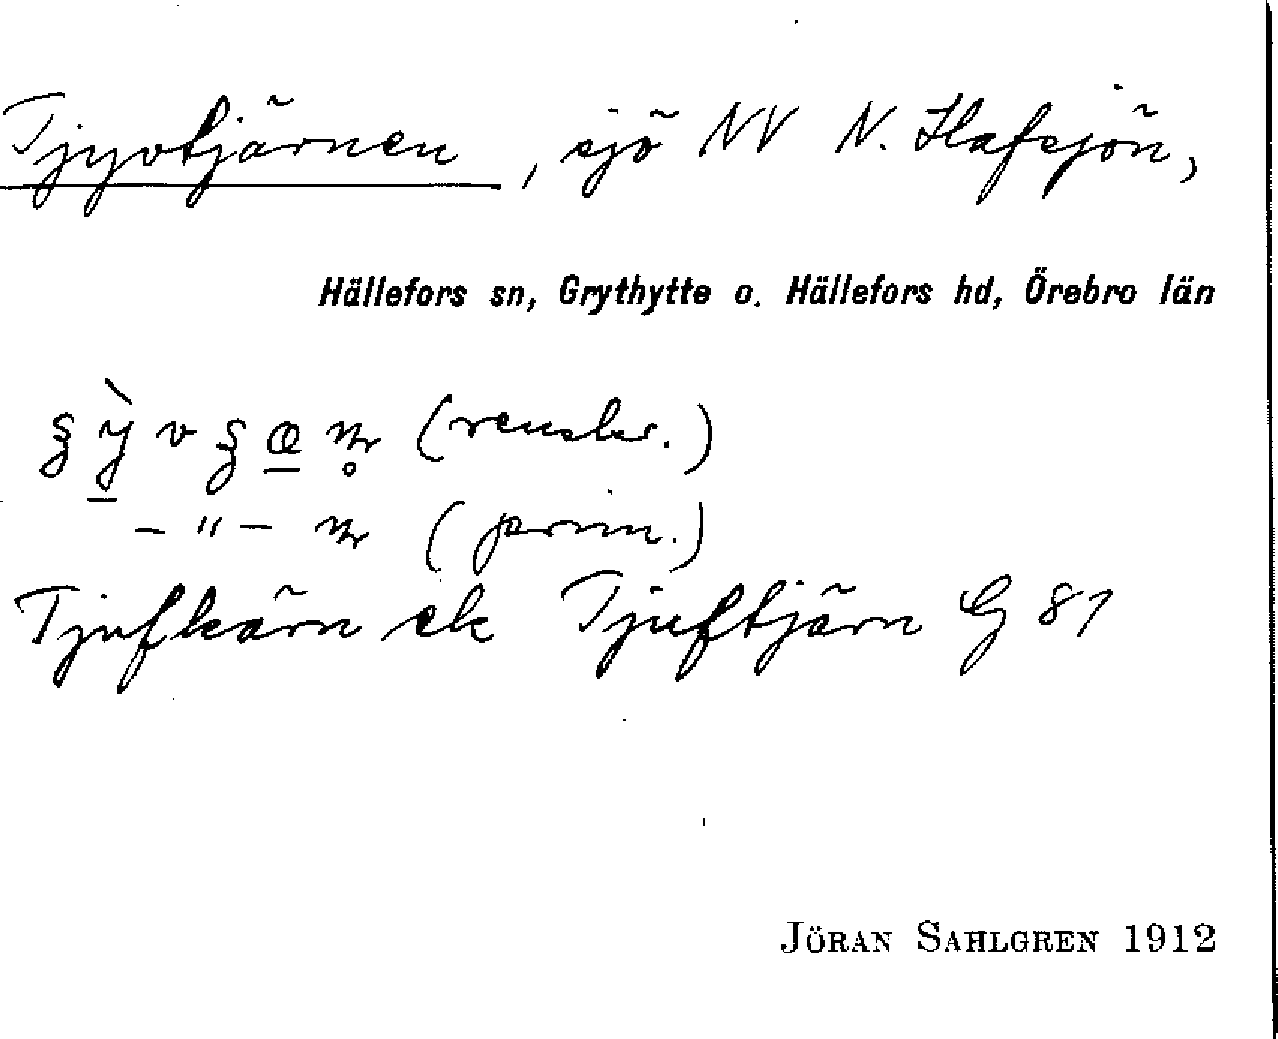 Tjyvtjärnen, sjö NV N. Hafsjön,
Hällefors sn, Grythytte o. Hällefors hd, Örebro län
(renskr.)
– " – (prim.)
Tjufkärn ek Tjuftjärn G 81
JÖRAN SAHLGREN 1912